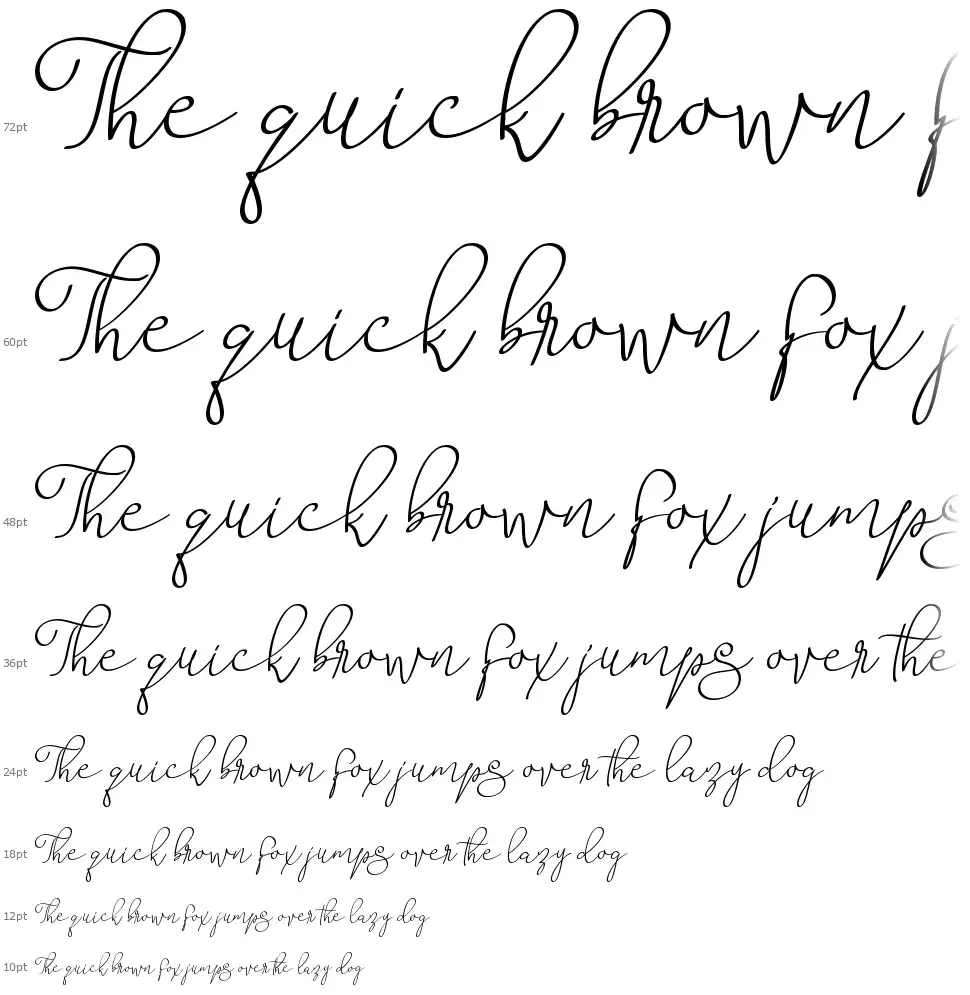 72pt The quick brown f
60pt The quick brown fox j
48pt The quick brown fox jumps
36pt The quick brown fox jumps over the
24pt The quick brown fox jumps over the lazy dog
18pt The quick brown fox jumps over the lazy dog
12pt The quick brown fox jumps over the lazy dog
10pt The quick brown fox jumps over the lazy dog